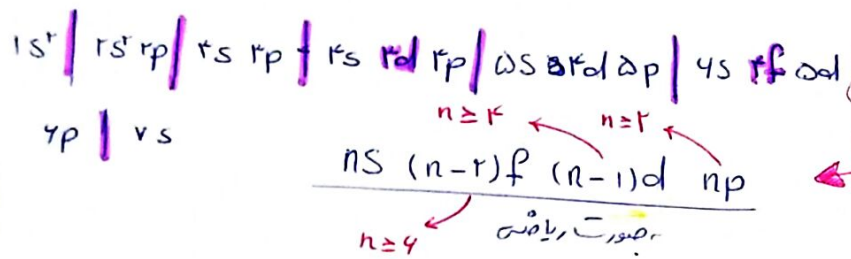 ۱s² | ۲s² ۲p | ۳s ۳p | ۴s ۳d ۴p | ۵s ۴d ۵p | ۶s ۴f ۵d
۶p | ۷s
n≥۴ n≥۲
ns (n-۲)f (n-۱)d np
n≥۶ بصورت ریاضی